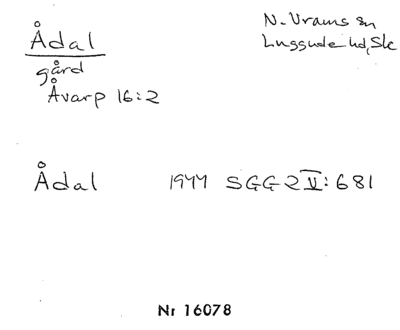 Ådal
N. Vrams sn
gård
Luggude hd, Sk
Åvarp 16:2
Ådal 1944 SGG 2 V: 681
Nr 16078